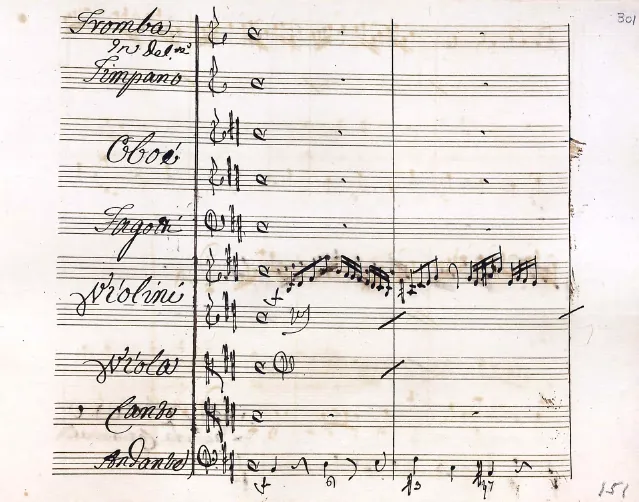 301
Tromba
In Del.re
Timpano
Oboè
Fagotti
Violini
Viola
Canto
Andante
151